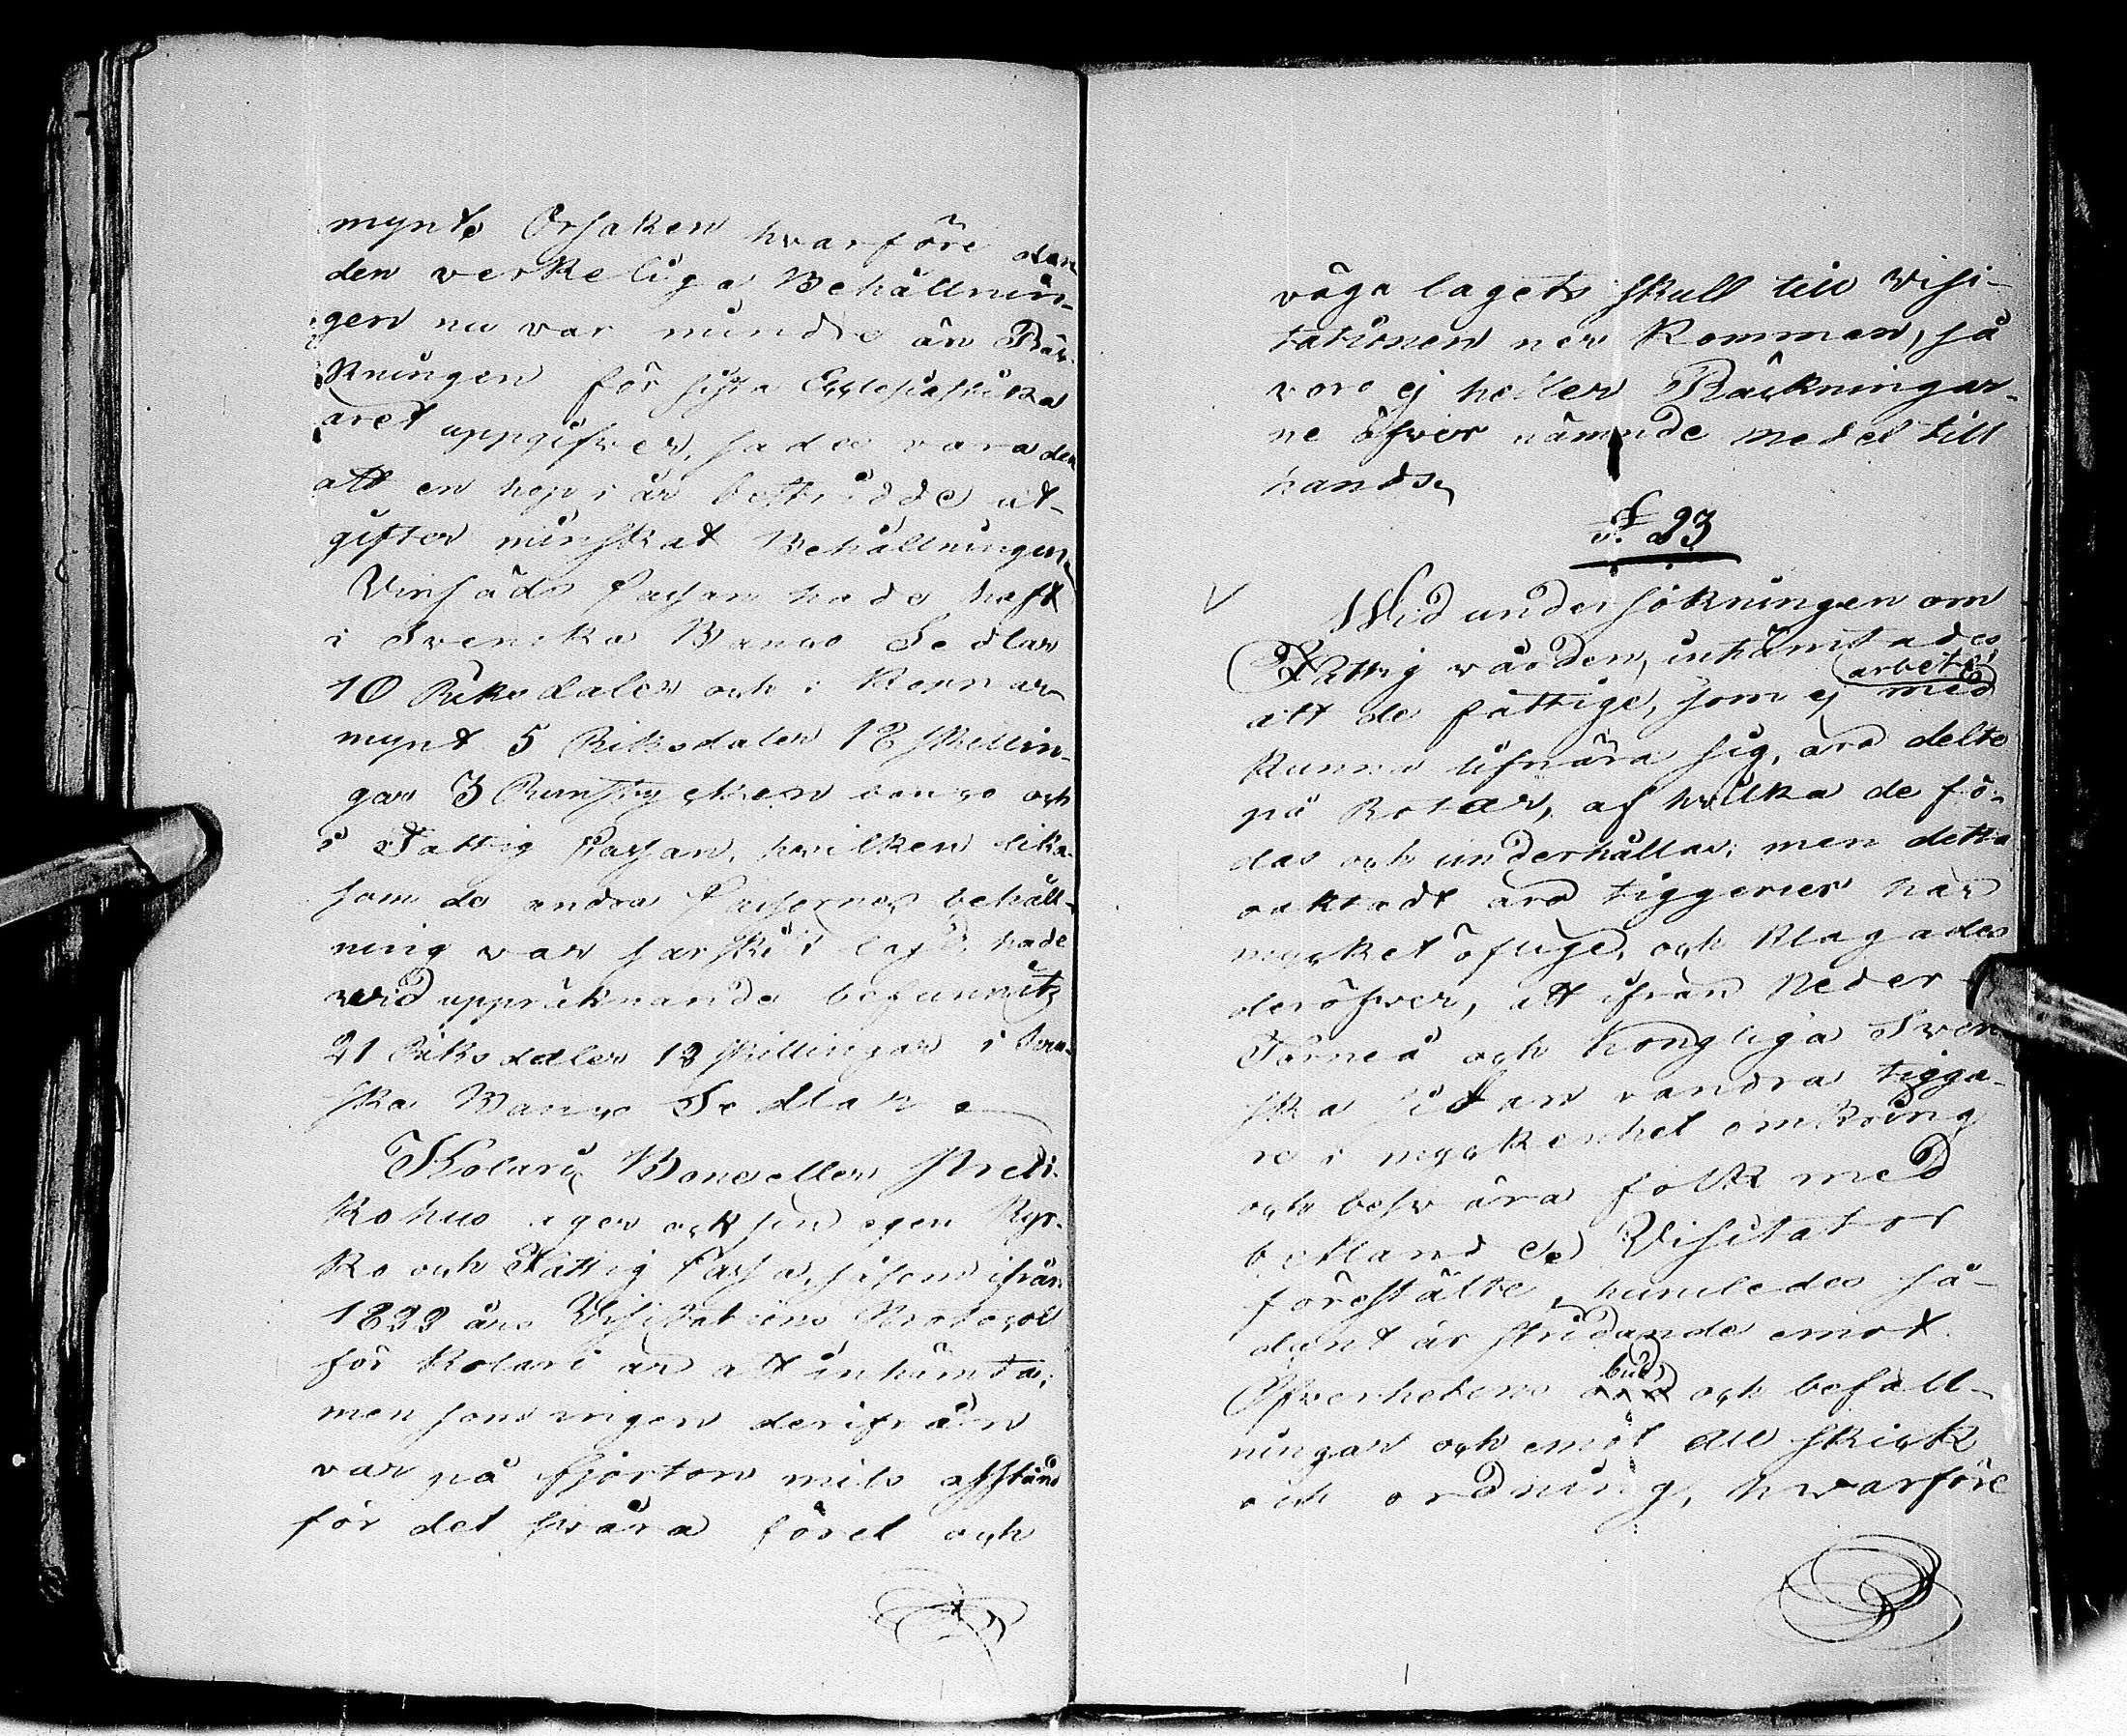 mynt. Orsaken hvarföre den
den verkeliga Behållnin-
gen nu var mindre än Räk-
kningen för sista Ecclesiastika
året uppgifver, sades vara den
att en hop i år bestridde ut-
gifter minskat Behållningen.
Vinsäds Cassan hade haft
i Svenska Banco Sedlar
10 Riksdaler och i Koppar
mynt 5 Riksdaler 18 skillin-
gar 3 Runstycken banco och
i Fattig Cassan, hvilken lika-
som de andra Cassornes behåll-
ning var särskilt lagd, hade
wid uppräknande befunnits
21 Riksdaler 12 skillingar i Sven-
ska Banco Sedlar.
Kolari Böne eller Predi-
kohus äger ock sin egen Kyr-
ko och Fattig Cassa, såsom ifrån
1822 års Visitations Protocoll
för Kolari är att inhämta;
men som ingen derifrån
var på fjorton mils afstånd
för det svåra föret och
väga lagets skull till Visi-
tationen ner kommen, så
voro ej heller Räkningar-
ne öfver nämnde medel till
hands.
§. 23
V
Wid undersökningen om
Fattig vården, inhämtades
arbete
att de fattige, som ej med
kunna lifnära sig, äro delte
på Rotar, af hvilka de fö-
das och underhållas; men detta
oaktadt äro tiggerier här
mycket öflige, och klagades
deröfver, att ifrån Neder
Torneå och Kongliga Sven
ska sidan vandra tigga-
re i myckenhet omkring
och besvära folk med
betland. Visitator
förestälte, huruledes så-
dant är stridande emot
bud
Öfverhetens och befall-
ningar och emot all skick
och ordning, hvarföre